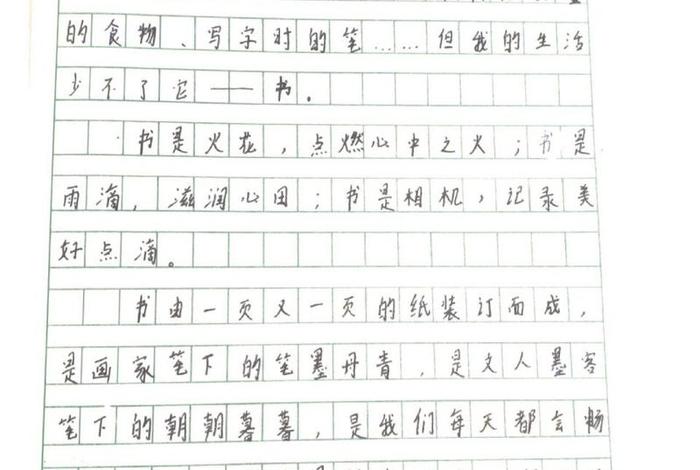 的食物、写字时的笔……但我的生活
少不了它——书。
书是火花，点燃心中之火；书是
雨滴，滋润心田；书是相机，记录美
好点滴。
书由一页又一页的纸装订而成，
是画家笔下的笔墨丹青，是文人墨客
笔下的朝朝暮暮，是我们每天都会畅